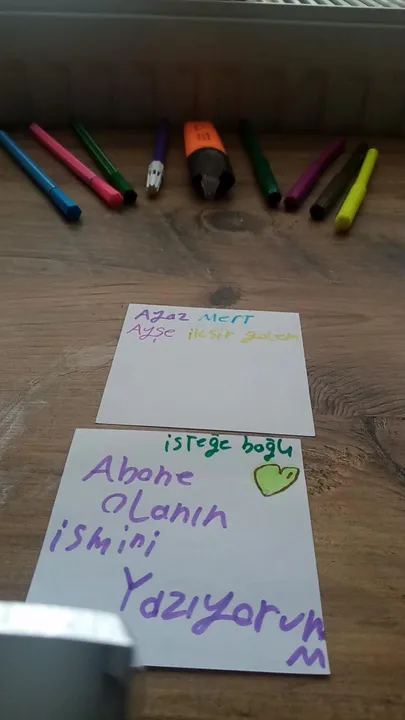 Ayaz Mert
Ayşe iksir golem
isteğe bağlı
Abone
OLanın
ismini
Yazıyorum
M